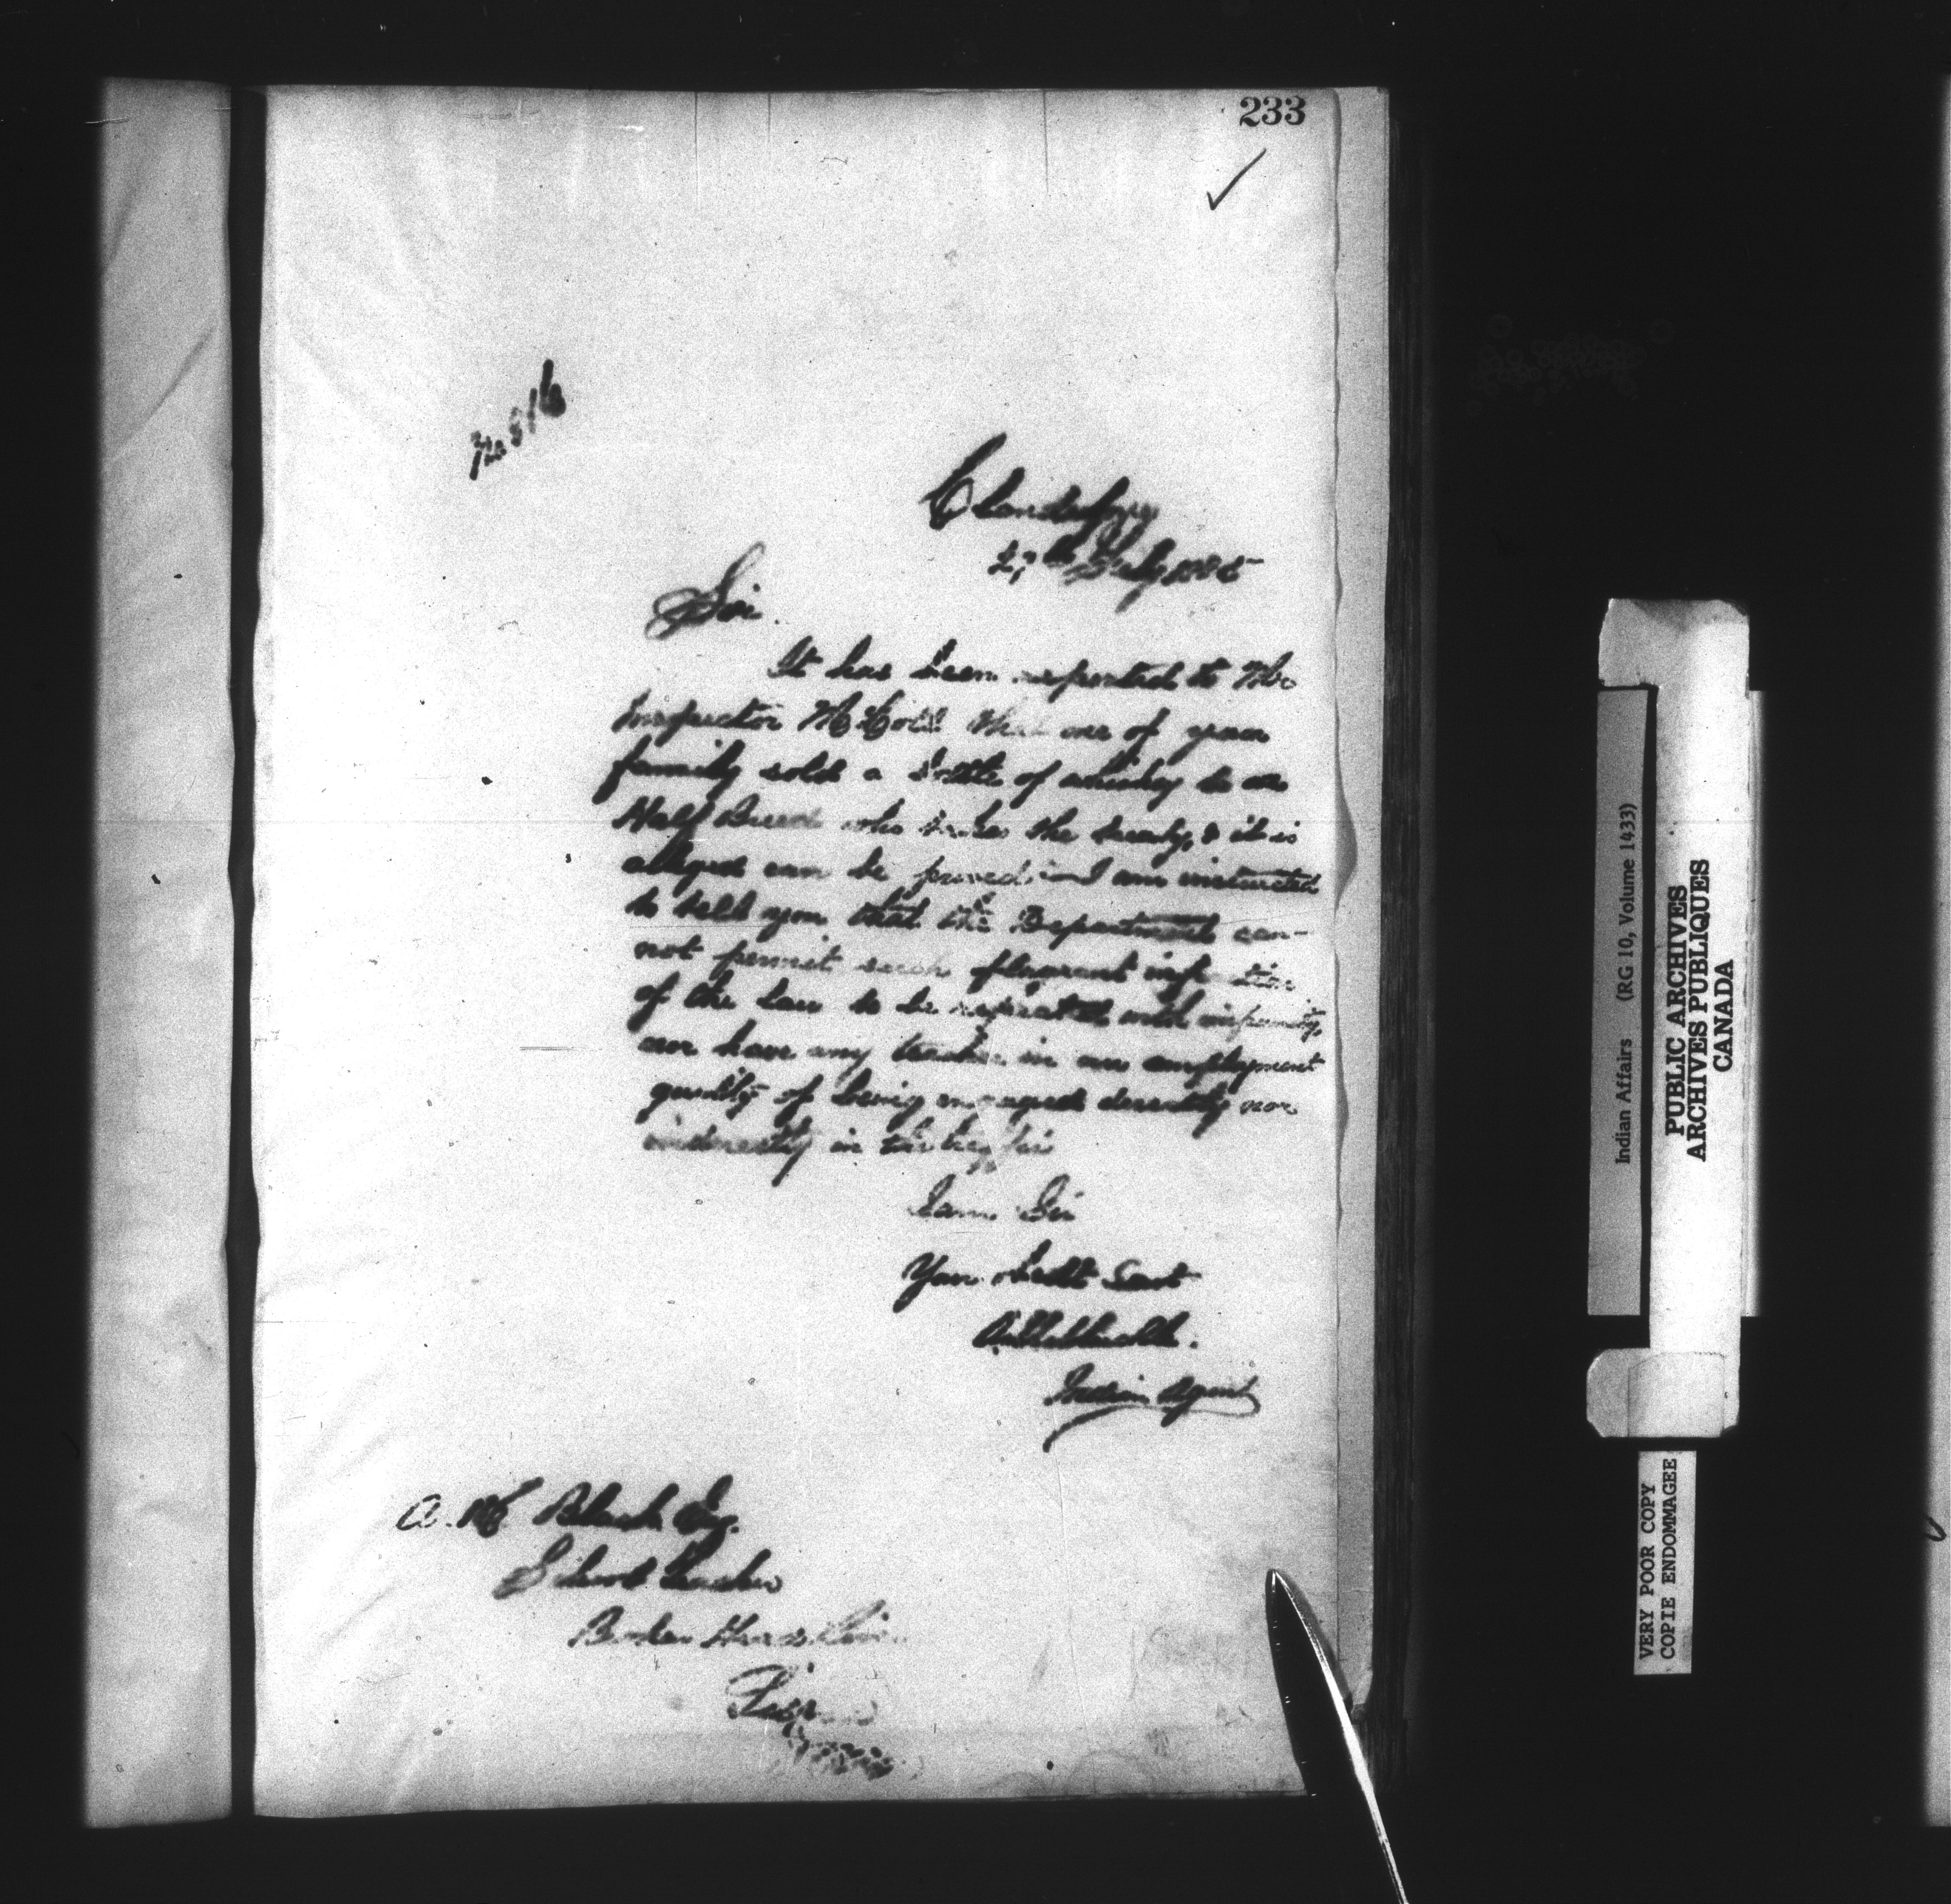 233
No 316
Clandeboye
27th July 1885
Sir.
It has been reported to Mr
Inspector McColl that one of your
family sold a bottle of whisky to an
Half Breed who takes the treaty, & it is
alleged can be proved, and I am instructed
to tell you that the Department can-
not permit such flagrant infraction
of the law to be repeated with impunity,
nor have any teacher in our employment
guilty of being engaged directly nor
indirectly in
I am Sir
Your obedt Servt
Indian Agent
A. M. Black Esq.
School Teacher
Indian Affairs (RG 10, Volume 1433)
PUBLIC ARCHIVES
ARCHIVES PUBLIQUES
CANADA
VERY POOR COPY
COPIE ENDOMMAGEE